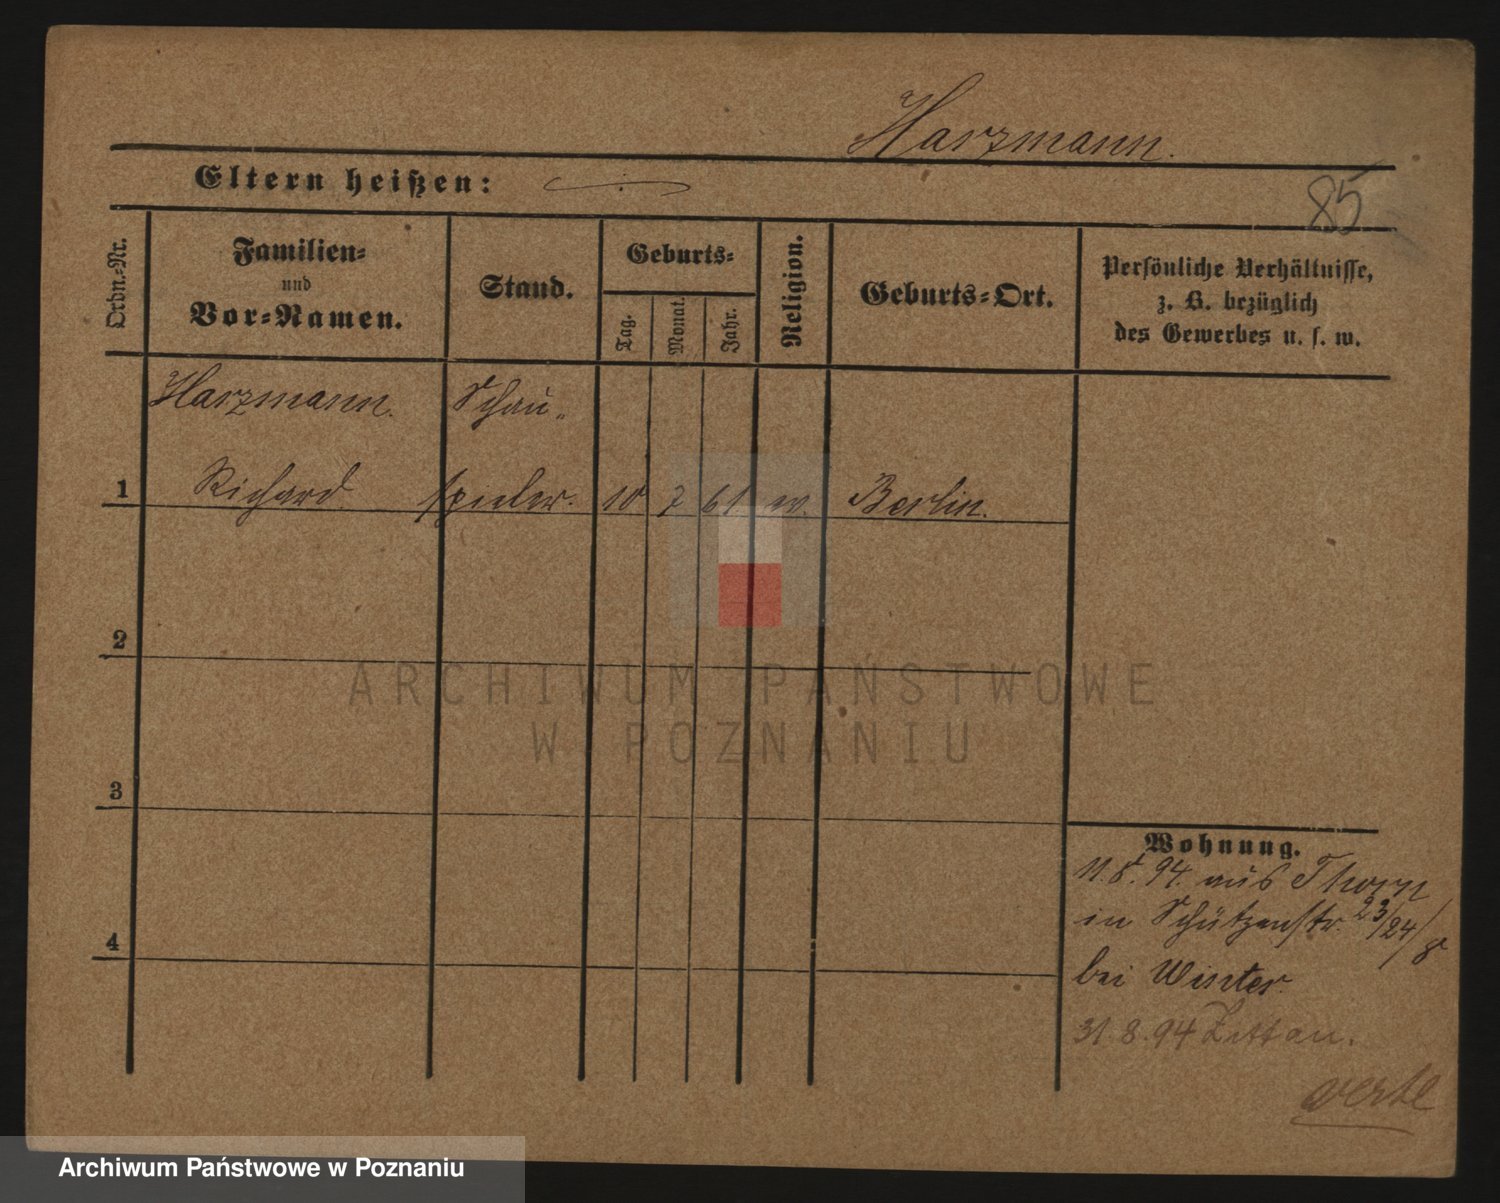 Harzmann.
Eltern heißen:
85
Ordn.-Nr.
Familien-
und
Vor-Namen.
Stand.
Geburts-
Tag.
Monat.
Jahr.
Religion.
Geburts-Ort.
Persönliche Verhältnisse,
z. B. bezüglich
des Gewerbes u. s. w.
Harzmann. Schau-
1 Richard. spieler. 10 7 61 Berlin.
2
3
4
Wohnung.
11.8.94. aus Thorn
in Schützenstr. 23/24/8
bei Winter.
31.8.94 Zittau.
ARCHIWUM PAŃSTWOWE
W POZNANIU
Archiwum Państwowe w Poznaniu